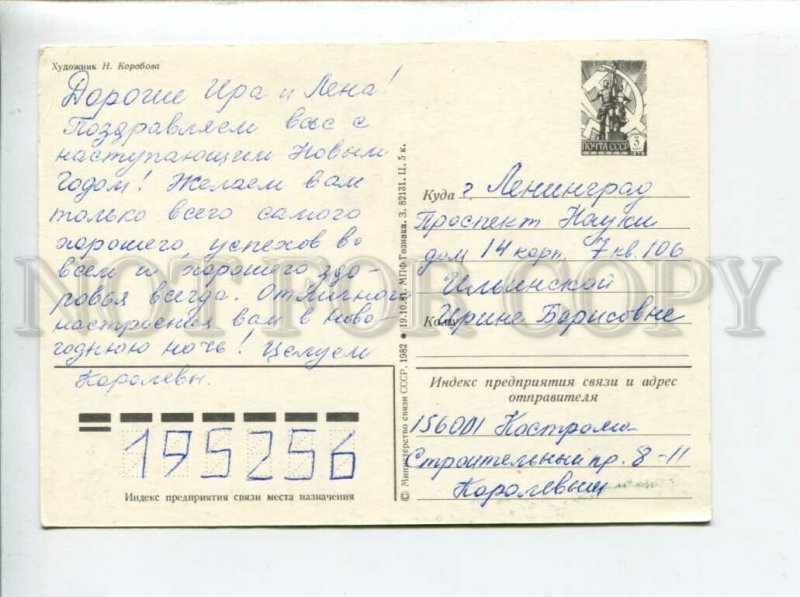 Художник Н. Коробова
Дорогие Ира и Лена!
Поздравляем вас с
наступающим Новым
годом! Желаем вам
только всего самого
хорошего, успехов во
всем и хорошего здо-
ровья всегда. Отличного
настроения вам в ново-
годнюю ночь! Целуем
Королевы.
195256
Индекс предприятия связи места назначения
© Министерство связи СССР, 1982 ● 19.10.81. МПФ Гознака. З. 82131. Ц. 5 к.
ПОЧТА СССР 3
Куда г. Ленинград
Проспект Науки
дом 14 корп. 7 кв. 106
Ильинской
Кому Ирине Борисовне
Индекс предприятия связи и адрес
отправителя
156001 Кострома
Строительный пр. 8-11
Королевы
NOT FOR COPY